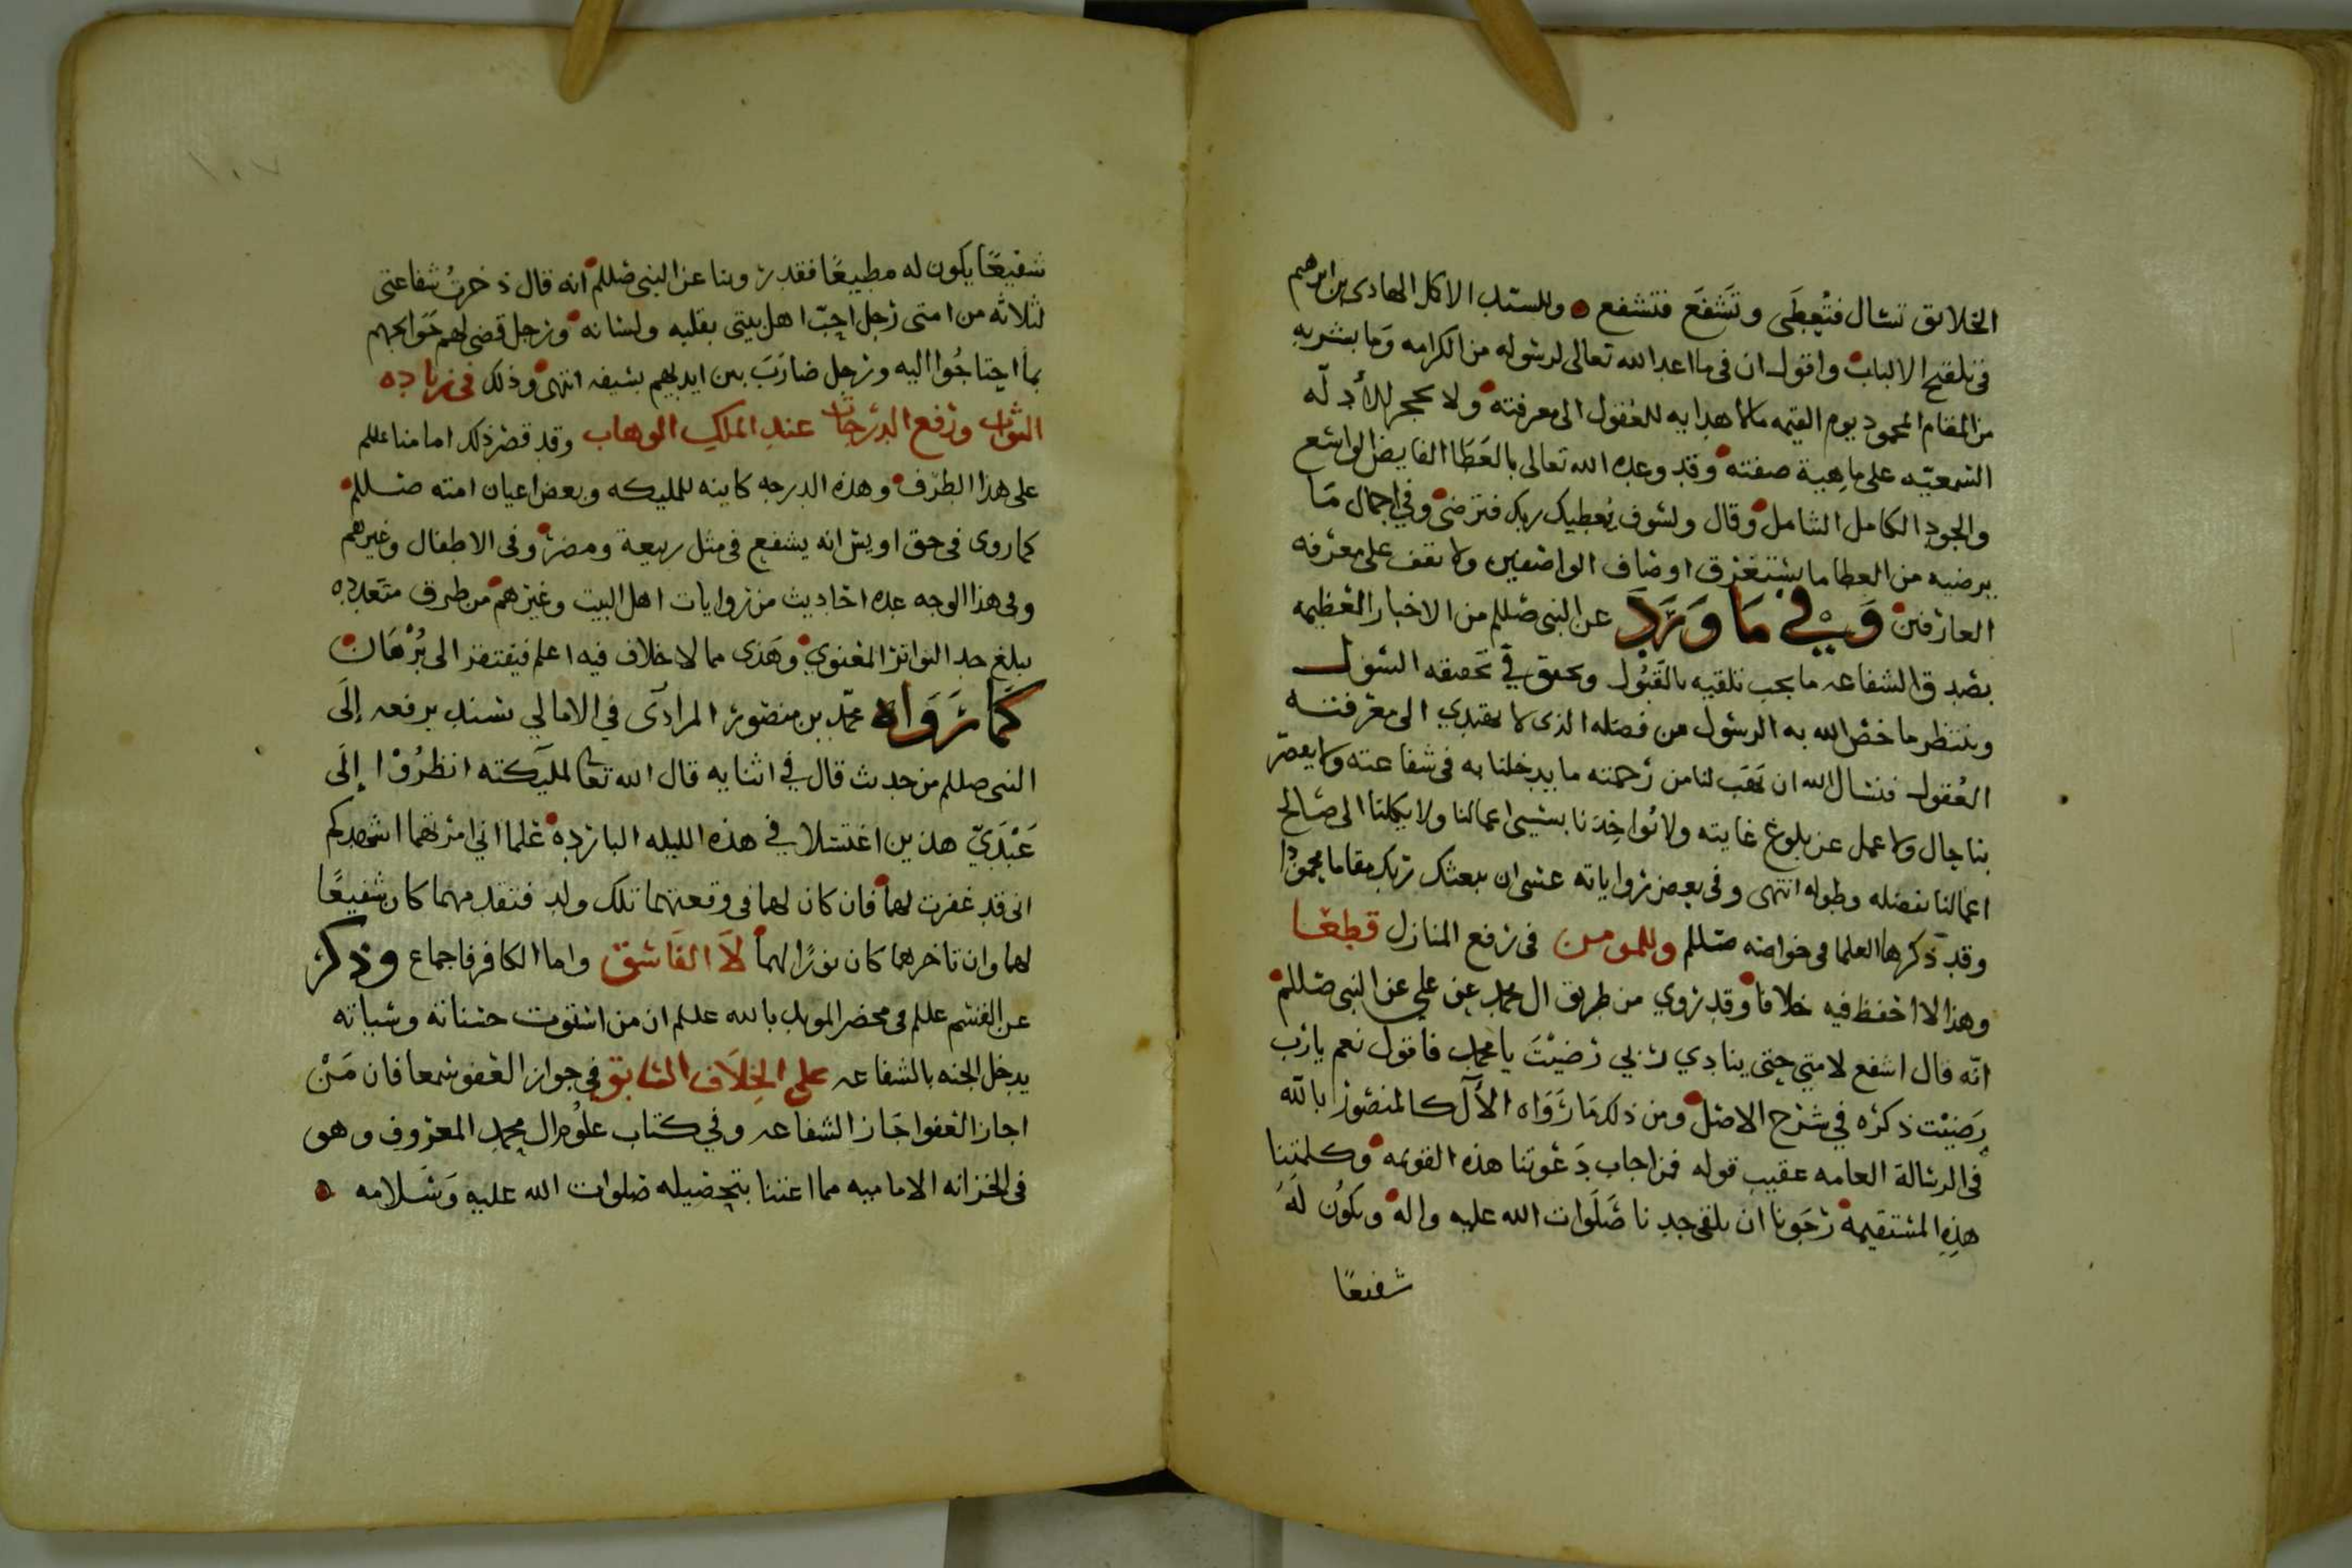 الخلائق تسال فتُعطَى وتَشفَع فتشفع وللسيد الاكمل الهادي بن ابرهيم
في تلقيح الالباب واقول ان في ما اعد الله تعالى لرسوله من الكرامه وما بشر به
من المقام المحمود يوم القيمه مالا هدايه للعقول الى معرفته ولا مجر للأدلّه
السمعيّه على ماهية صفته وقد وعده الله تعالى بالعَطَا الفايض الواسع
والجود الكامل الشامل وقال ولسوف يُعطيك ربك فترضى وفي اجمال مَا
يرضيه من العطا ما يستغرق اوصاف الواصفين ولا تقف على معرفه
العارفين وَفِي مَا وَرَدَ عن النبي صللم من الاخبار العظيمه
بصدق الشفاعه ما يجب تلقيه بالقَبُول ويحقق في تحقيقه السول
وينتظر ما خصّ الله به الرسول من فضله الذى لا يهتدي الى معرفتـه
العُقول فنسال الله ان يَهَب لنا من رحمته ما يدخلنا به في شفاعته ولا يقصر
بنا حال ولا عمل عن بلوغ غايته ولا تُواخِذنا بسيى اعمالنا ولا يكلنا الى صالح
اعمالنا بفضله وطوله انتهى وفى بعض رواياته عسى ان يبعثك ربك مقاما محمودا
وقد ذكرها العلما في خواصه صللم وللمومن فى رفع المنازل قطعا
وهذا لا احفظ فيه خلافا وقد روي من طريق ال محمد عن علي عن النبي صللم
انّه قال اشفع لامتي حتى ينادي ربي رضيْتَ يا محمد فاقول نعم يا رب
رَضيْت ذكره في شرح الاصل ومن ذلك مَا رَوَاه الآل كالمنصور بالله
في الرسالة العامه عقيب قوله فمن اجاب دَعوتنا هذه القويمه وكلمتنا
هذِهِ المستقيمه رَجَونا ان يلقى جدنا صَلَوات الله عليه واله ويكوُن لَهُ
شفيعًا
شفيعًا يكون له مطيعًا فقد روينا عن النبي صللم انه قال ذخرتُ شفاعتى
لثلاثه من امتى رجل احبّ اهل بيتى بقلبه ولسانه ورجل قضى لهم حَوايجهم
بما احتاجُوا اليه ورجل ضارَبَ بين ايديهم بسيفه انتهى وذلك في زياده
الثواب ورفع الدرجات عند الملك الوهاب وقد قصر ذلك امامنا عللم
على هذا الطرف وهذه الدرجه كاينه للمليكه وبعض اعيان امته صللم
كما روى في حق اويس انه يشفع في مثل ربيعة ومضر وفى الاطفال وغيرهم
وفى هذا الوجه عده احاديث من روايات اهل البيت وغيرهم من طرق متعدده
يبلغ حد التواتر المعنوي وهَذى مما لا خلاف فيه اعلم فيفتقر الى بُرْهَان
كَمَا رَوَاه محمّد بن منصور المرادى في الامالي بسند يرفعه إلَى
النبي صللم من حديث قال في اثنايه قال الله تعالى لمليكته انظرُوْا إلَى
عَبْدَيّ هذين اغتسلا في هذه الليله البارده علما اني امرتهما اشهدكم
انى قد غفرت لهما فان كان لهما فى وقعتهما تلك ولد فتقدمهما كان شفيعًا
لهما وان تاخرهما كان نورًا لهما لاَ الفَاسق واما الكافر فاجماع وذكر
عن القسم عللم في محضر المويد بالله عللم ان من استوت حسناته وسياته
يدخل الجنه بالشفاعه على الخِلاَف السابق في جواز العفو سمعا فان مَنْ
اجاز العفو اجَاز الشفاعه وفي كتاب علوُم ال محمد المعروف وهو
فى الخزانه الاماميه مما اعتنا بتحصيله صلوات الله عليه وَسَلامه